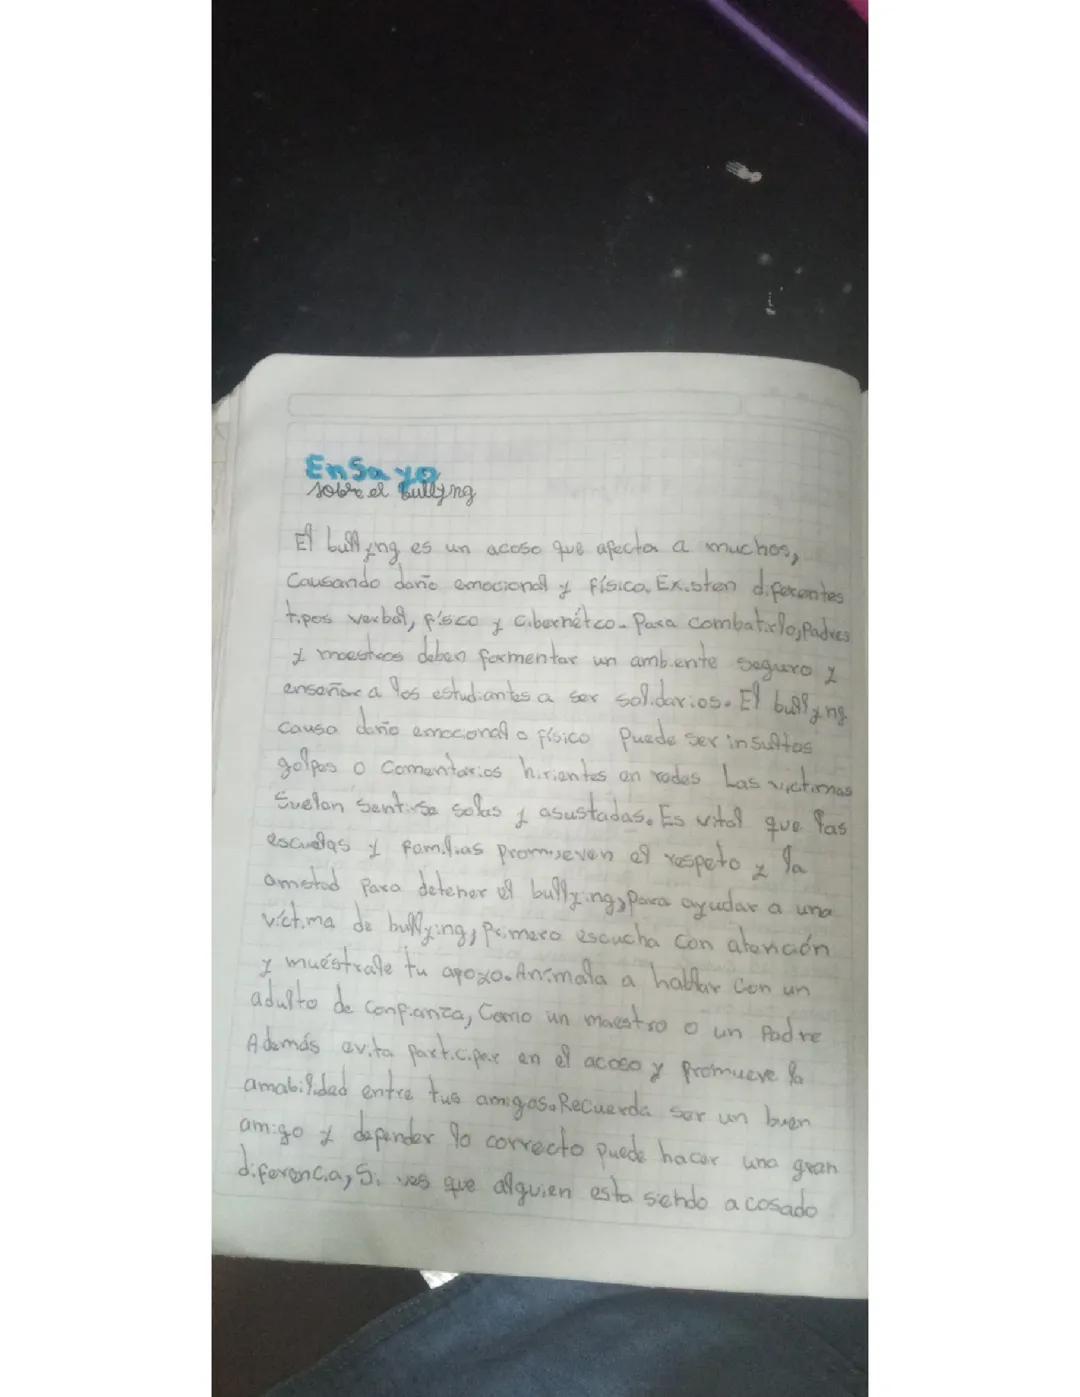 Ensayo
sobre el bullyng
El bullyng es un acoso que afecta a muchos,
Causando daño emocional y físico. Existen diferentes
tipos verbal, físco y cibernétco. Para combatirlo, Padres
y maestros deben formentar un ambiente seguro y
enseñar a los estudiantes a ser solidarios. El bullyng
causa daño emocional o físico Puede ser insultos
golpes o comentarios hirientes en redes Las victimas
Suelen sentirse solas y asustadas. Es vital que las
escuelas y familias promueven el respeto y la
amistad para detener el bullying, para ayudar a una
víctima de bullying, primero escucha con atención
y muéstrale tu apoyo. Anímala a hablar con un
adulto de confianza, Como un maestro o un Padre
Además evita participar en el acoso y promueve la
amabilidad entre tus amigos. Recuerda ser un buen
amigo y defender lo correcto puede hacer una gran
diferencia, Si ves que alguien esta siendo acosado